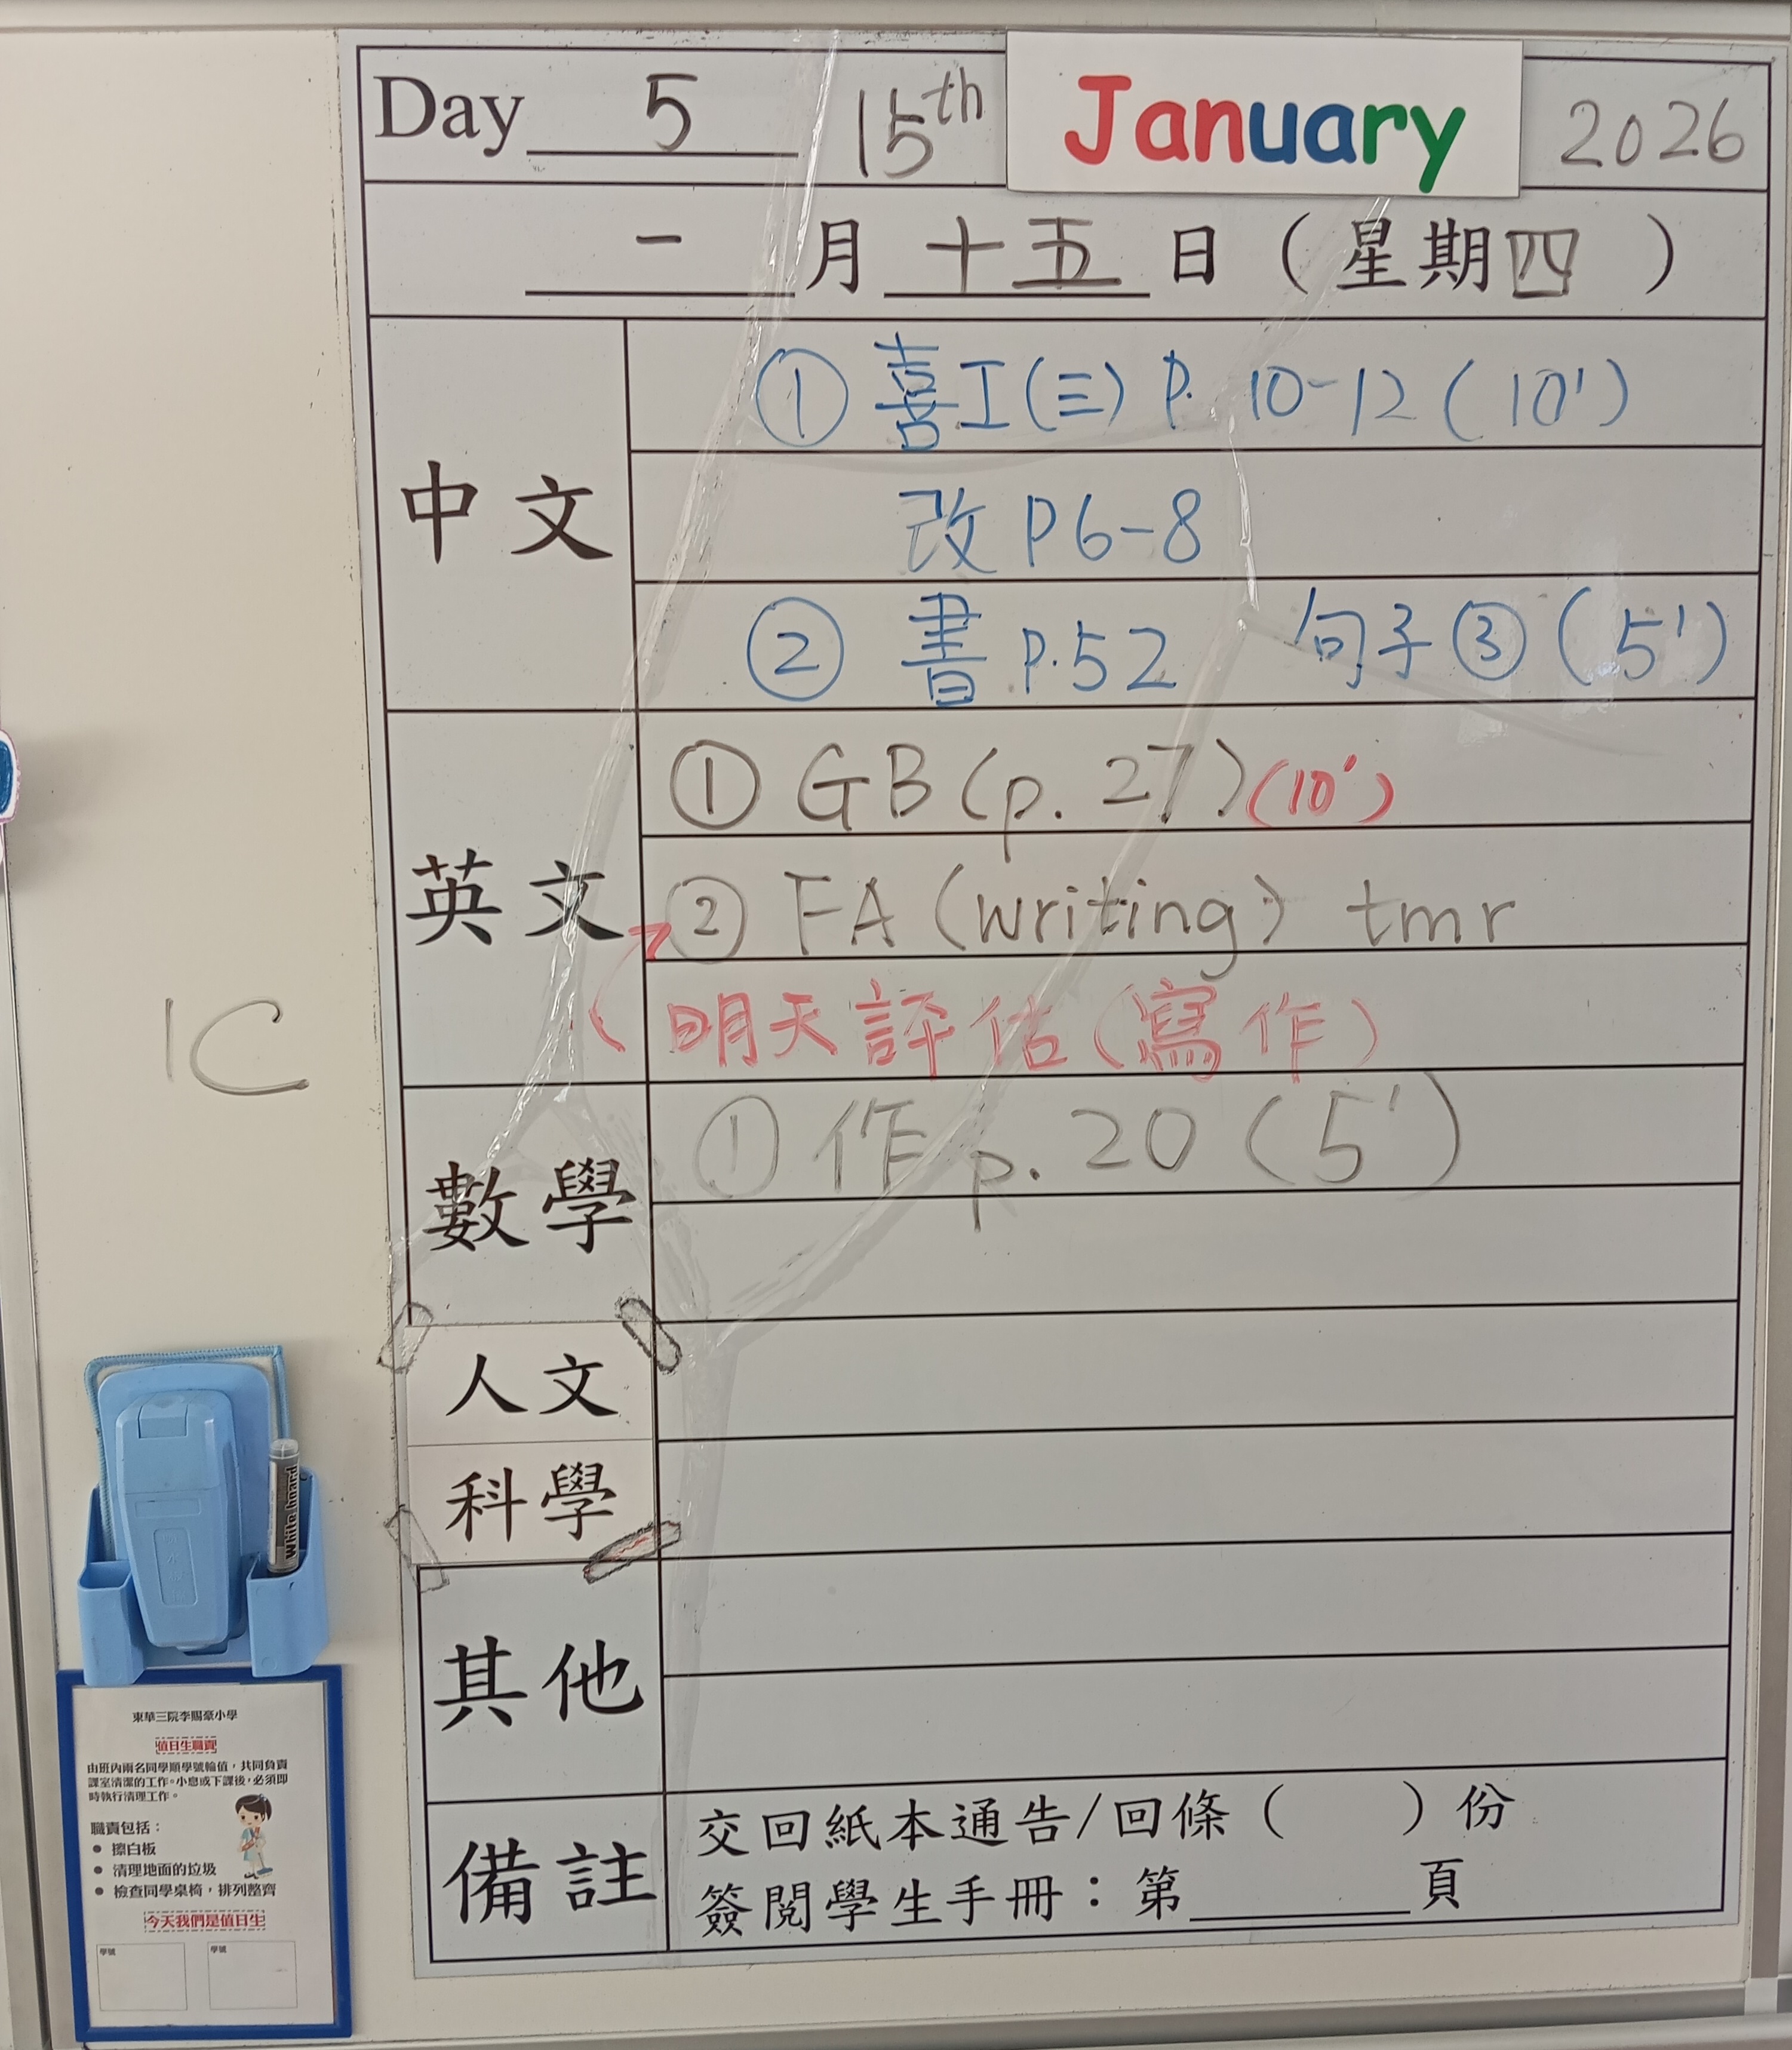 Day 5 15th January 2026
一月十五日（星期四）
中文
① 喜工(三) p. 10-12 (10')
改 P6-8
② 書 p.52 句子③ (5')
英文
① GB (p. 27) (10')
② FA (writing) tmr
明天評估(寫作)
1C
數學
① 作 p. 20 (5')
人文
科學
其他
備註
交回紙本通告/回條（　）份
簽閱學生手冊：第______頁
White board
東華三院李賜豪小學
值日生職責
由班內兩名同學順學號輪值，共同負責
課室清潔的工作。小息或下課後，必須即
時執行清理工作。
職責包括：
● 擦白板
● 清理地面的垃圾
● 檢查同學桌椅，排列整齊
今天我們是值日生
學號 學號